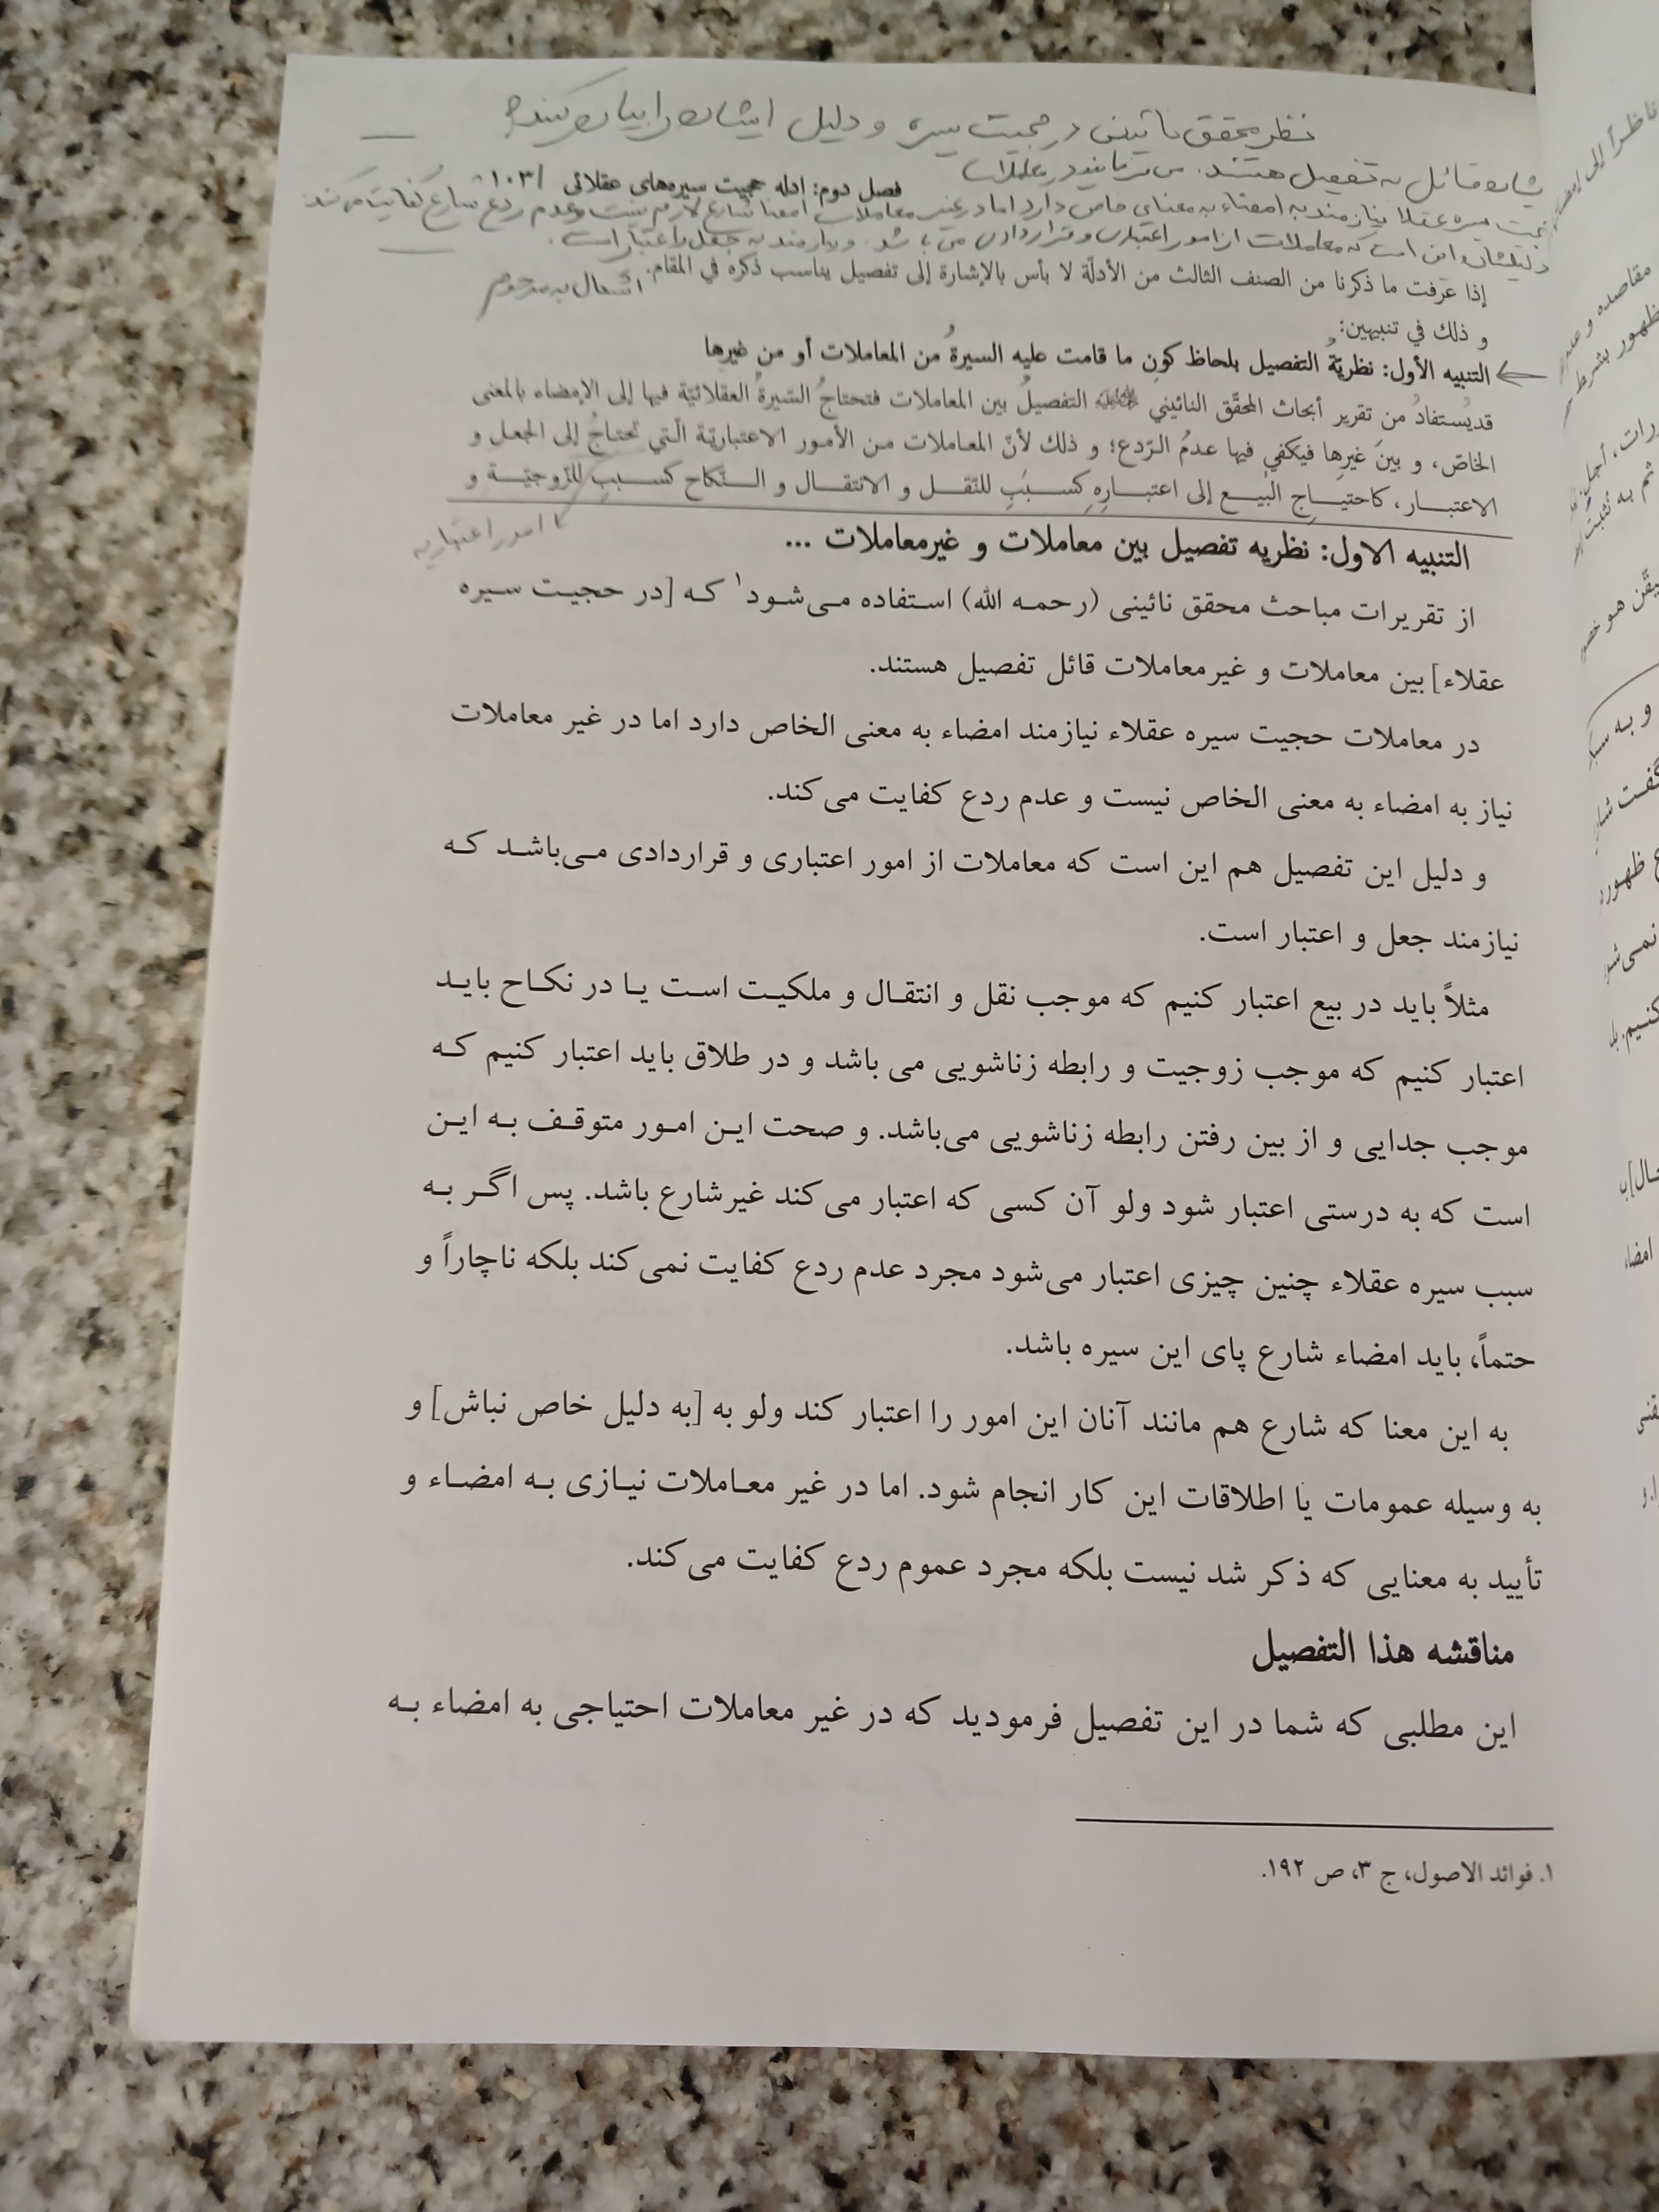 نظر محقق نائینی در حجیت سیره و دلیل ایشان را بیان کنید؟
ایشان قائل به تفصیل هستند. می فرمایند در معاملات
فصل دوم: ادله حجیت سیره‌های عقلائی / ۱۰۳
حجیت سیره عقلا نیازمند به امضاء به معنای خاص دارد اما در غیر معاملات امضا شارع لازم نیست و عدم ردع شارع کفایت می کند
دلیلشان این است که معاملات از امور اعتباری و قراردادی می باشد. و نیازمند به جعل و اعتبار است.
إذا عرفت ما ذكرنا من الصنف الثالث من الأدلّة لا بأس بالإشارة إلى تفصيل يناسب ذكره في المقام.
اشکال به مرحوم
و ذلك في تنبيهين:
التنبيه الأول: نظريّةُ التفصيل بلحاظ كونِ ما قامت عليه السيرةُ من المعاملات أو من غيرها
قديُستفادُ من تقرير أبحاث المحقّق النائيني التفصيلُ بين المعاملات فتحتاجُ السّيرةُ العقلائيّة فيها إلى الإمضاء بالمعنى
الخاصّ، و بينَ غيرِها فيكفي فيها عدمُ الرّدع؛ و ذلك لأنّ المعاملات من الأمور الاعتباريّة الّتي تحتاجُ إلى الجعل و
الاعتبار، كاحتياج البيع إلى اعتبارِهِ كسببٍ للنّقل و الانتقال و النّكاح كسببٍ للزّوجيّة و
امور اعتباریه
التنبیه الاول: نظریه تفصیل بین معاملات و غیرمعاملات ...
از تقریرات مباحث محقق نائینی (رحمه الله) استفاده می‌شود۱ که [در حجیت سیره
عقلاء] بین معاملات و غیرمعاملات قائل تفصیل هستند.
در معاملات حجیت سیره عقلاء نیازمند امضاء به معنی الخاص دارد اما در غیر معاملات
نیاز به امضاء به معنی الخاص نیست و عدم ردع کفایت می‌کند.
و دلیل این تفصیل هم این است که معاملات از امور اعتباری و قراردادی می‌باشد که
نیازمند جعل و اعتبار است.
مثلاً باید در بیع اعتبار کنیم که موجب نقل و انتقال و ملکیت است یا در نکاح باید
اعتبار کنیم که موجب زوجیت و رابطه زناشویی می باشد و در طلاق باید اعتبار کنیم که
موجب جدایی و از بین رفتن رابطه زناشویی می‌باشد. و صحت این امور متوقف به این
است که به درستی اعتبار شود ولو آن کسی که اعتبار می‌کند غیرشارع باشد. پس اگر به
سبب سیره عقلاء چنین چیزی اعتبار می‌شود مجرد عدم ردع کفایت نمی‌کند بلکه ناچاراً و
حتماً، باید امضاء شارع پای این سیره باشد.
به این معنا که شارع هم مانند آنان این امور را اعتبار کند ولو به [به دلیل خاص نباش] و
به وسیله عمومات یا اطلاقات این کار انجام شود. اما در غیر معاملات نیازی به امضاء و
تأیید به معنایی که ذکر شد نیست بلکه مجرد عموم ردع کفایت می‌کند.
مناقشه هذا التفصیل
این مطلبی که شما در این تفصیل فرمودید که در غیر معاملات احتیاجی به امضاء به
۱. فوائد الاصول، ج ۳، ص ۱۹۲.